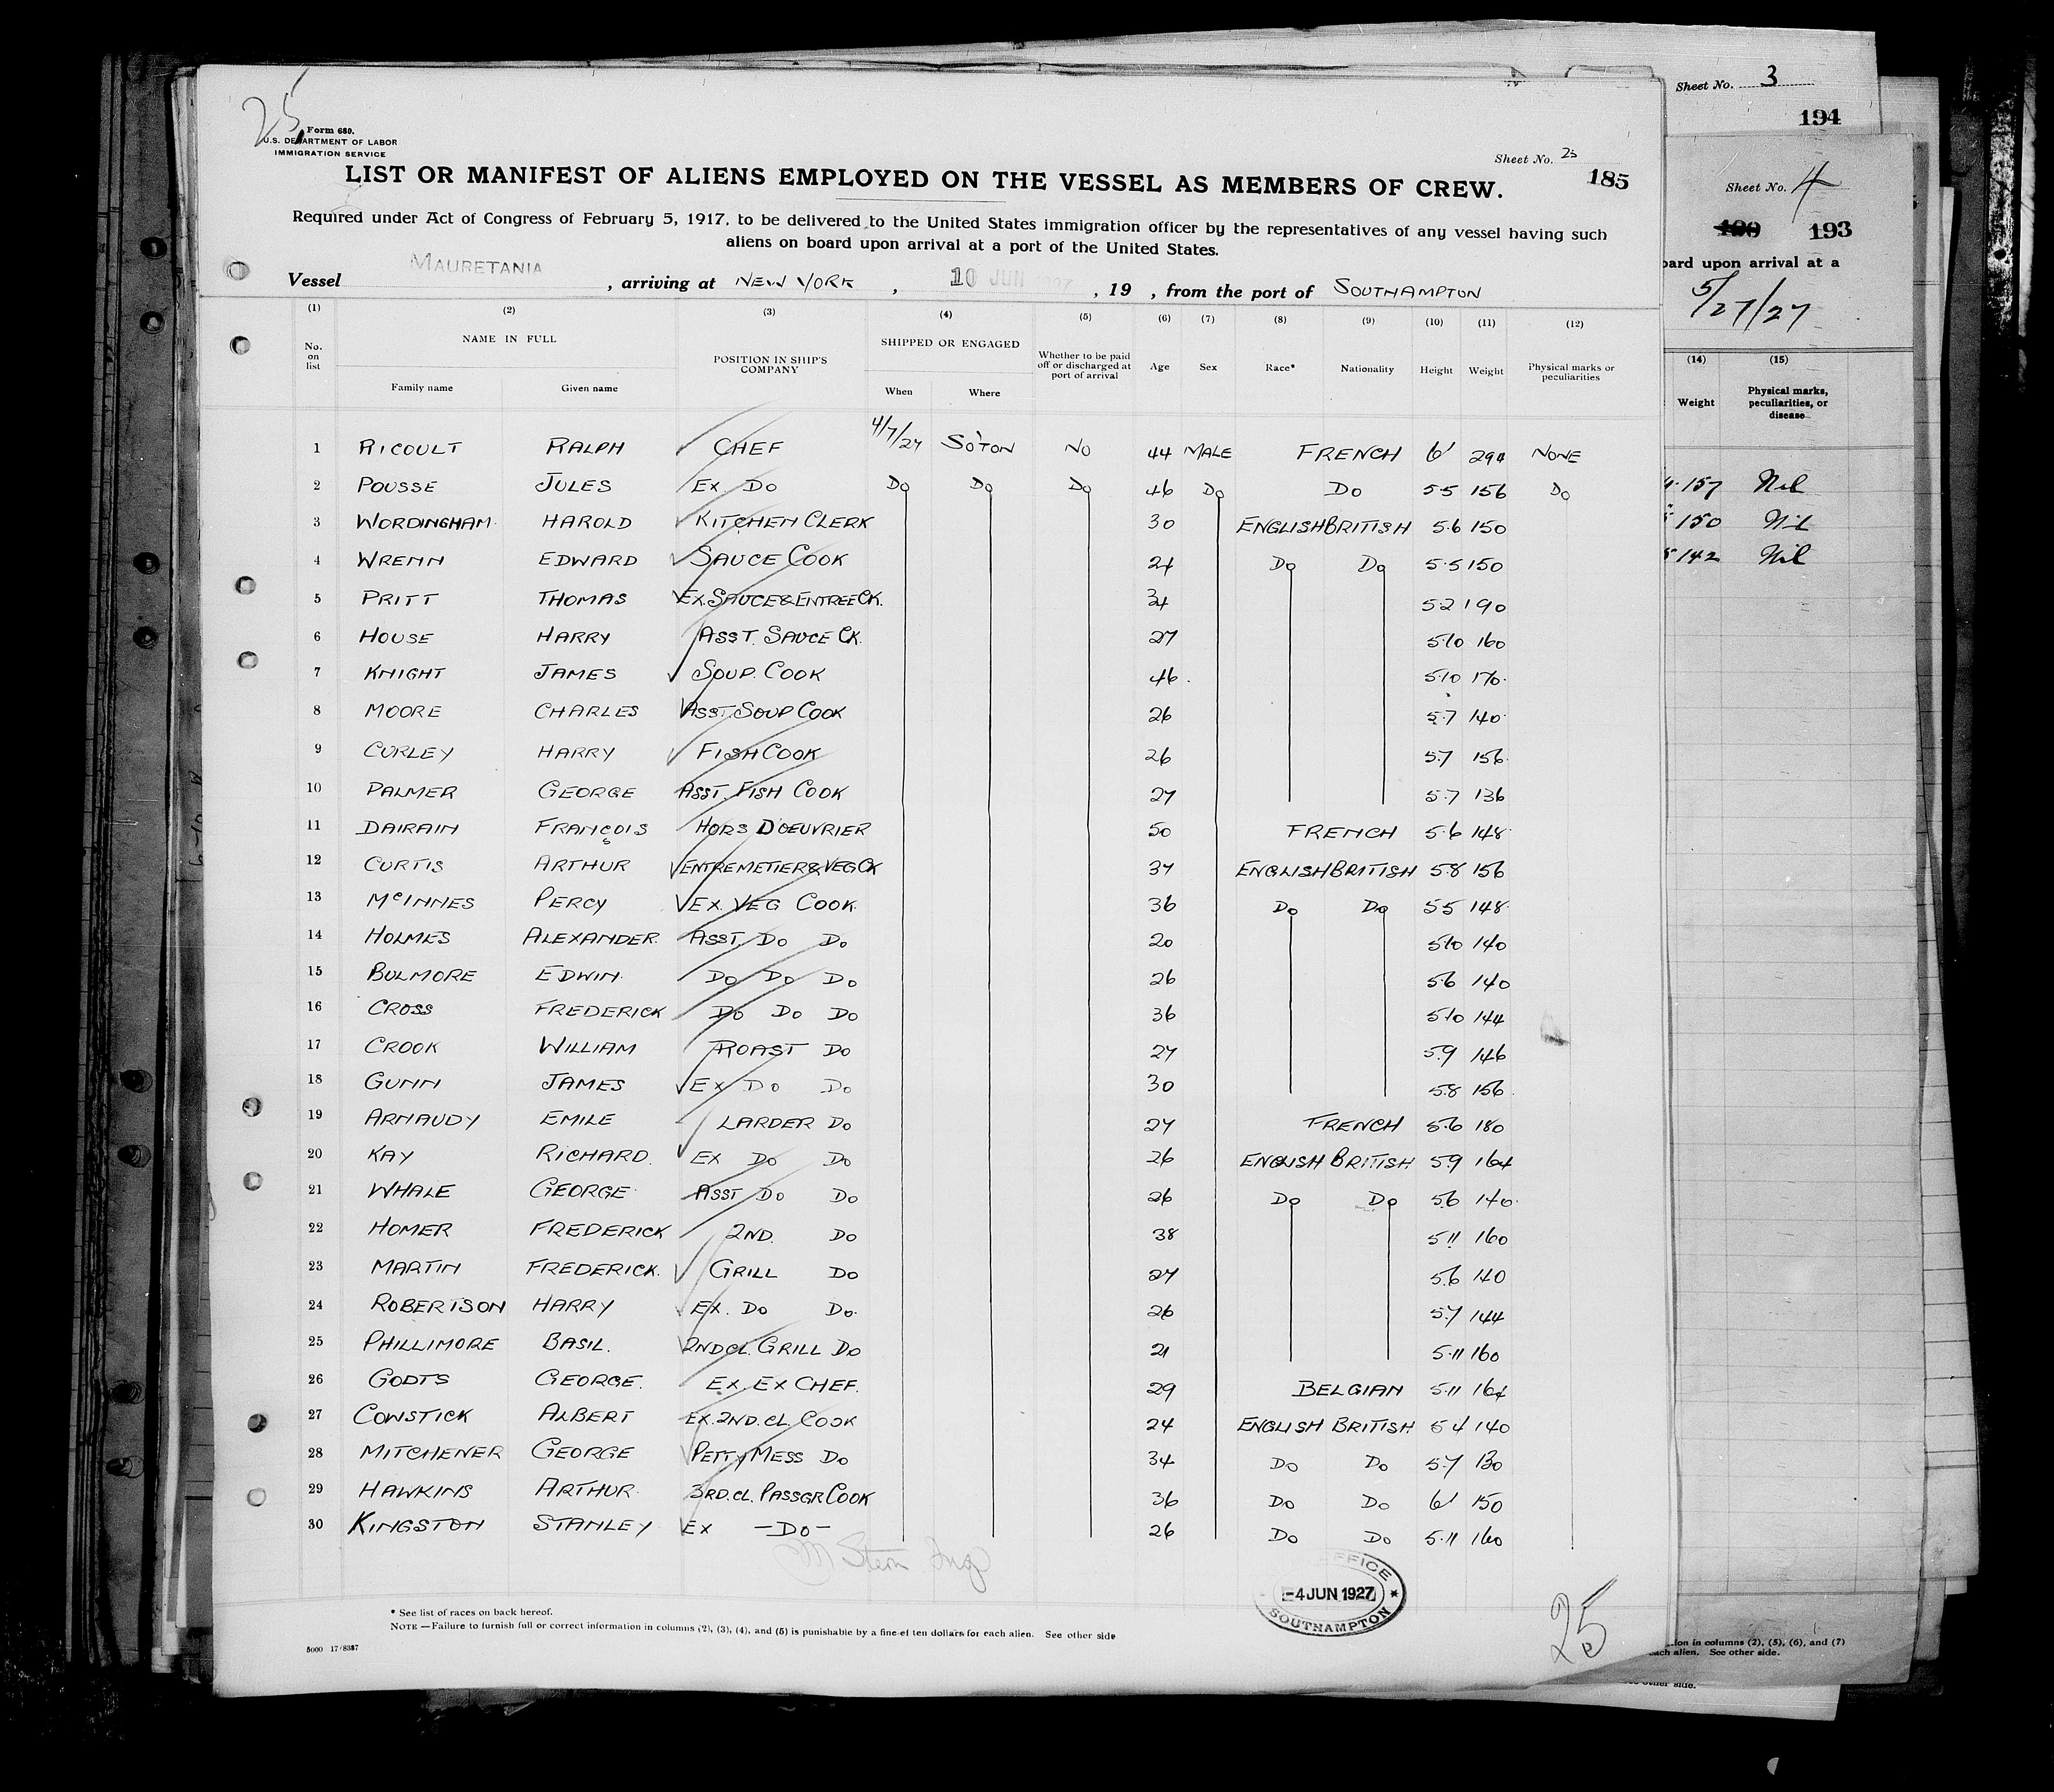 25
Form 680.
U.S. DEPARTMENT OF LABOR
IMMIGRATION SERVICE
Sheet No. 25
185
LIST OR MANIFEST OF ALIENS EMPLOYED ON THE VESSEL AS MEMBERS OF CREW.
Required under Act of Congress of February 5, 1917, to be delivered to the United States immigration officer by the representatives of any vessel having such
aliens on board upon arrival at a port of the United States.
Vessel MAURETANIA, arriving at NEW YORK, 10 JUN 1927, 19 , from the port of SOUTHAMPTON
(1) (2) (3) (4) (5) (6) (7) (8) (9) (10) (11) (12)
No. on list NAME IN FULL POSITION IN SHIP'S COMPANY SHIPPED OR ENGAGED Whether to be paid off or discharged at port of arrival Age Sex Race* Nationality Height Weight Physical marks or peculiarities
Family name Given name When Where
1 RICOULT RALPH CHEF 4/7/27 SO'TON NO 44 MALE FRENCH 6' 294 NONE
2 POUSSE JULES EX. DO DO DO DO 46 DO DO 5·5 156 DO
3 WORDINGHAM HAROLD KITCHEN CLERK 30 ENGLISH BRITISH 5·6 150
4 WRENN EDWARD SAUCE COOK 24 DO DO 5·5 150
5 PRITT THOMAS EX. SAUCE & ENTREE CK. 34 5·2 190
6 HOUSE HARRY ASST. SAUCE CK. 27 5·10 160
7 KNIGHT JAMES SOUP. COOK 46 5·10 170
8 MOORE CHARLES ASST. SOUP COOK 26 5·7 140
9 CURLEY HARRY FISH COOK 26 5·7 156
10 PALMER GEORGE ASST. FISH COOK 27 5·7 136
11 DAIRAIN FRANÇOIS HORS D'OEUVRIER 50 FRENCH 5·6 148
12 CURTIS ARTHUR ENTREMETIER & VEG CK 37 ENGLISH BRITISH 5·8 156
13 McINNES PERCY EX. VEG COOK 36 DO DO 5·5 148
14 HOLMES ALEXANDER ASST. DO DO 20 5·10 140
15 BULMORE EDWIN DO DO DO 26 5·6 140
16 CROSS FREDERICK DO DO DO 36 5·10 144
17 CROOK WILLIAM ROAST DO 27 5·9 146
18 GUNN JAMES EX DO DO 30 5·8 156
19 ARNAUDY EMILE LARDER DO 27 FRENCH 5·6 180
20 KAY RICHARD EX DO DO 26 ENGLISH BRITISH 5·9 164
21 WHALE GEORGE ASST DO DO 26 DO DO 5·6 140
22 HOMER FREDERICK 2ND. DO 38 5·11 160
23 MARTIN FREDERICK GRILL DO 27 5·6 140
24 ROBERTSON HARRY EX. DO DO 26 5·7 144
25 PHILLIMORE BASIL. 2ND CL. GRILL DO 21 5·11 160
26 GODTS GEORGE. EX. EX CHEF. 29 BELGIAN 5·11 164
27 COWSTICK ALBERT EX. 2ND. CL. COOK 24 ENGLISH BRITISH 5·4 140
28 MITCHENER GEORGE PETTY MESS DO 34 DO DO 5·7 130
29 HAWKINS ARTHUR 3RD. CL. PASSGR COOK 36 DO DO 6' 150
30 KINGSTON STANLEY EX -DO- 26 DO DO 5·11 160
M Stern Insp
OFFICE
-4 JUN 1927
SOUTHAMPTON
* See list of races on back hereof.
NOTE —Failure to furnish full or correct information in columns (2), (3), (4), and (5) is punishable by a fine of ten dollars for each alien. See other side
25
Sheet No. 3
194
Sheet No. 4
193
board upon arrival at a
5/27/27
(14) (15)
Weight Physical marks, peculiarities, or disease
157 Nil
150 Nil
142 Nil
in columns (2), (5), (6), and (7)
each alien. See other side.
other side.